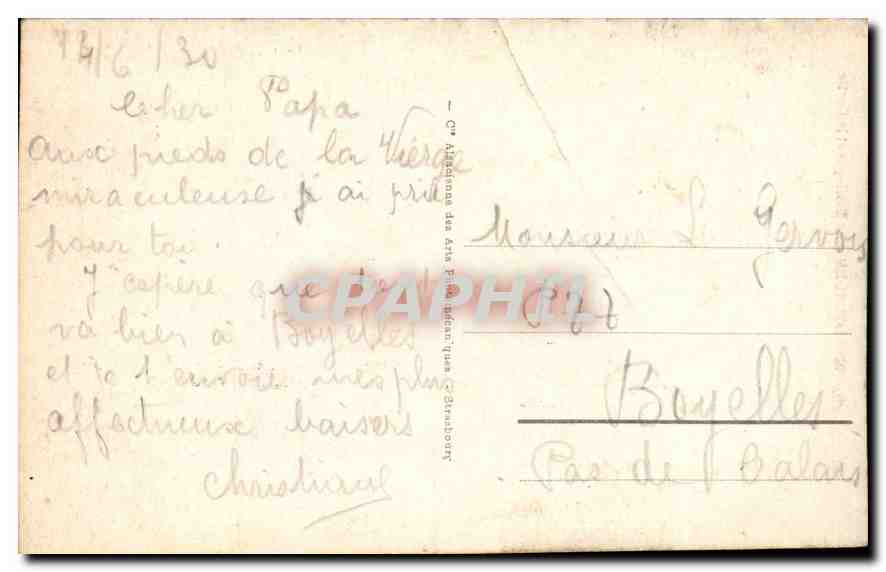 14/6/30
Cher Papa
aux pieds de la Vierge
miraculeuse j'ai prié
pour toi.
J'espère que tout
va bien à Boyelles
et je t'envoie mes plus
affectueux baisers
Christiane
— Cie Alsacienne des Arts Photomécaniques - Strasbourg
Monsieur L. Gervois
Boyelles
Pas de Calais
CPAPHIL